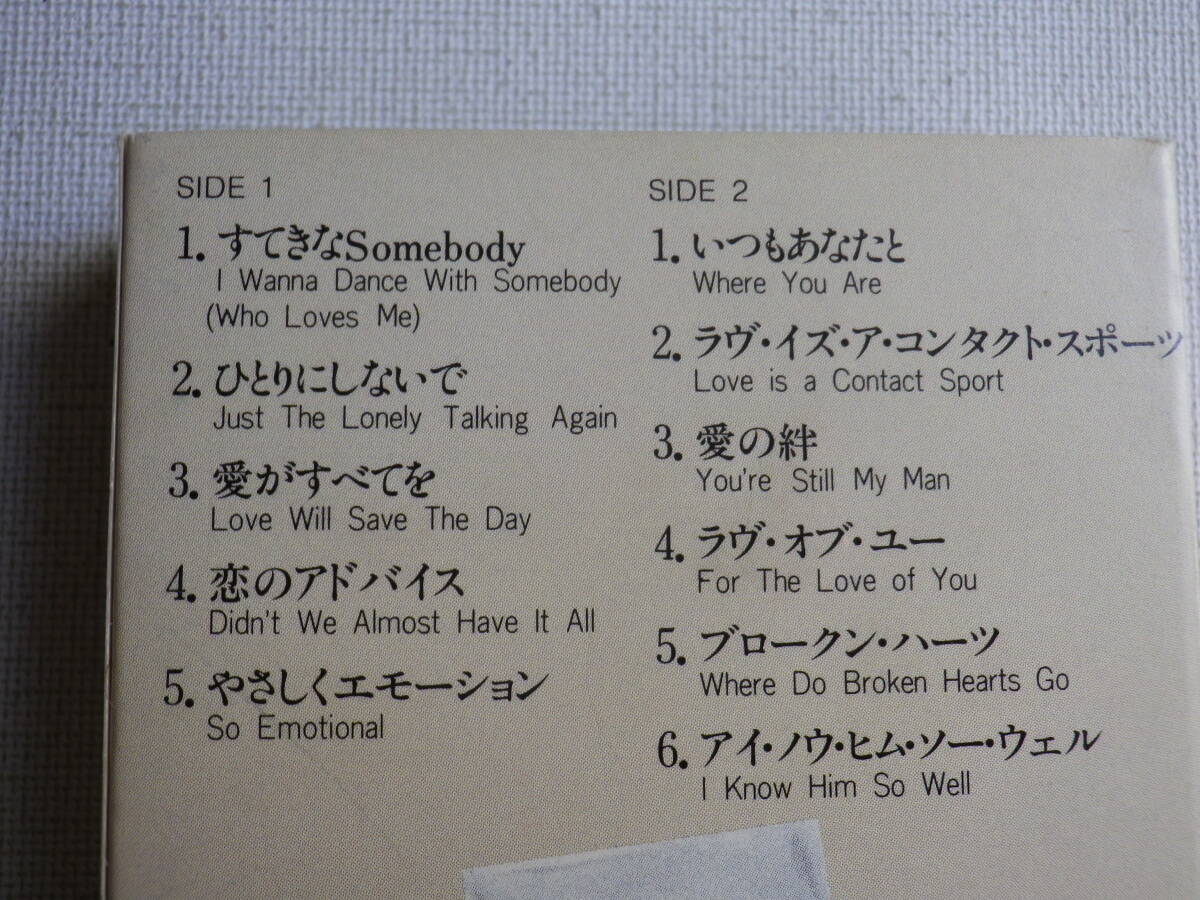 SIDE 1
1. すてきなSomebody
I Wanna Dance With Somebody
(Who Loves Me)
2. ひとりにしないで
Just The Lonely Talking Again
3. 愛がすべてを
Love Will Save The Day
4. 恋のアドバイス
Didn't We Almost Have It All
5. やさしくエモーション
So Emotional
SIDE 2
1. いつもあなたと
Where You Are
2. ラヴ・イズ・ア・コンタクト・スポーツ
Love is a Contact Sport
3. 愛の絆
You're Still My Man
4. ラヴ・オブ・ユー
For The Love of You
5. ブロークン・ハーツ
Where Do Broken Hearts Go
6. アイ・ノウ・ヒム・ソー・ウェル
I Know Him So Well